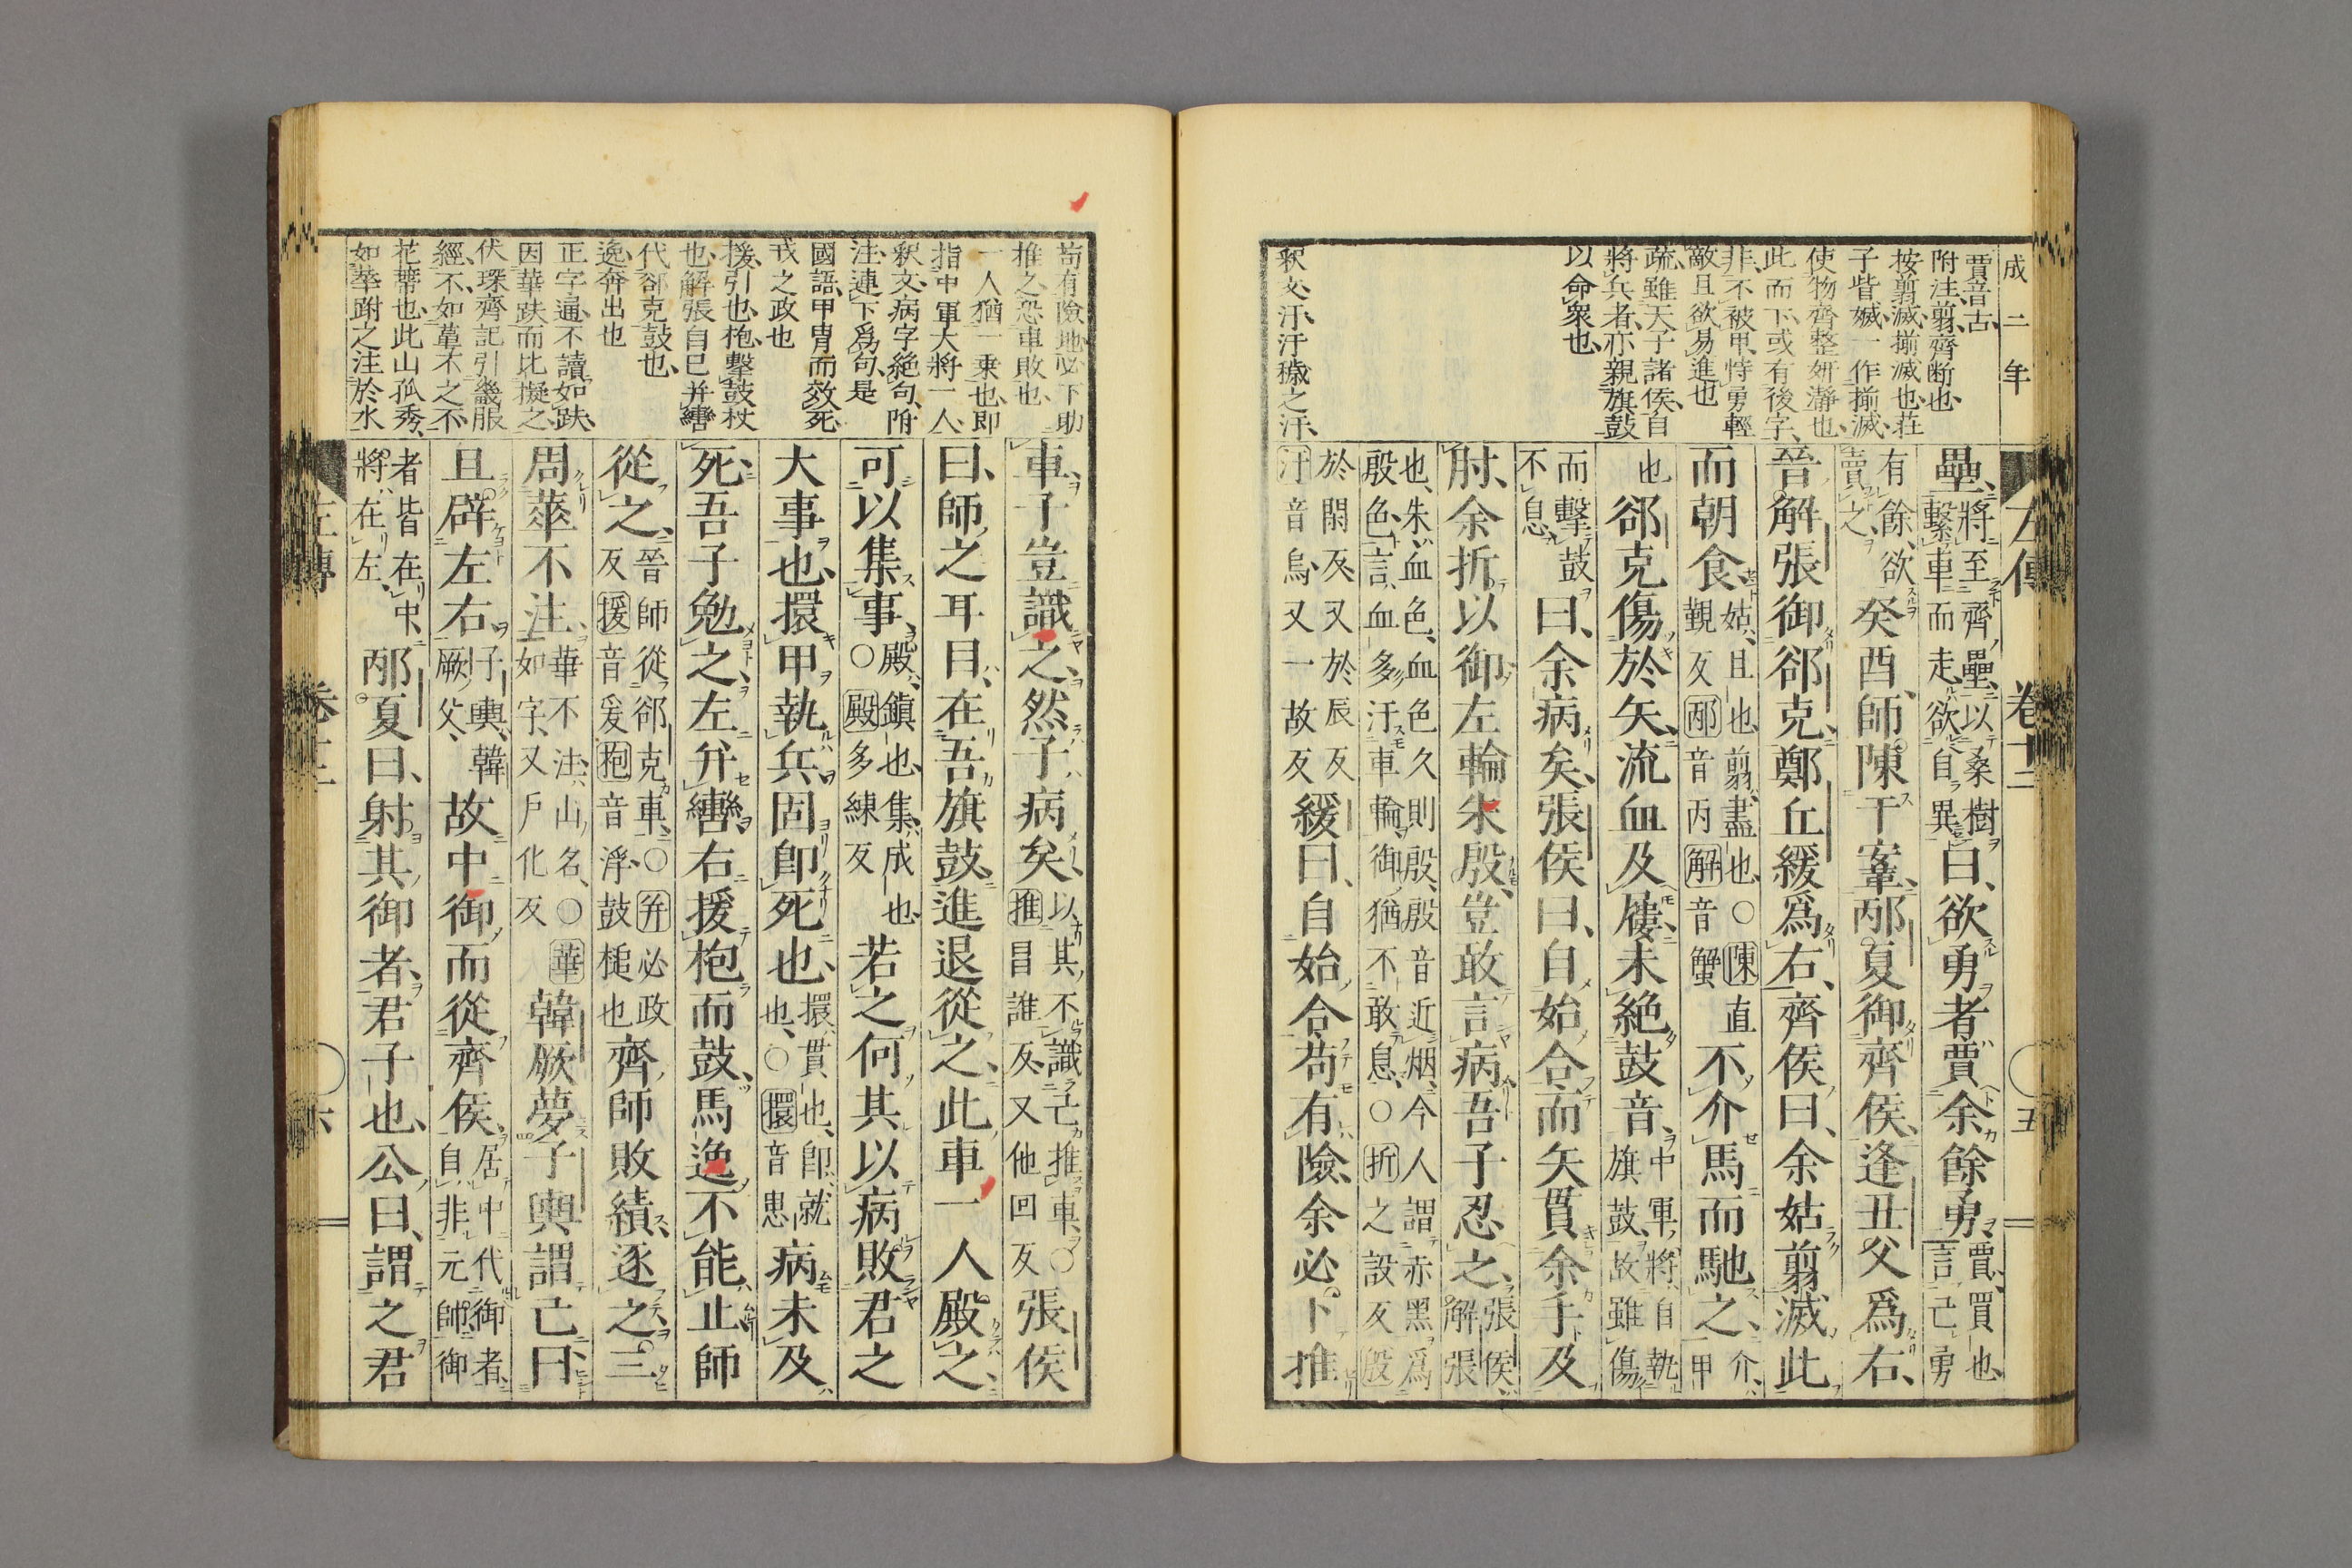 成二年
左傳　卷十二　五
賈音古、
附注翦齊断也、
按翦滅揃滅也、莊
子眥㓕一作揃滅、
使物齊整妍瀞也、
此而下或有後字、
非不被甲恃勇輕
敵且欲易進也
疏雖天子諸侯自
將兵者亦親旗鼓
以命衆也、
釈文汙汙穢之汙、
壘、將至齊壘以桑樹繫車而走欲自異曰、欲勇者賈余餘勇、賈買也言己勇
有餘欲賣之癸酉、師陳于鞌、邴夏御齊侯、逢丑父爲右、
晉解張御郤克、鄭丘緩爲右、齊侯曰、余姑翦滅此
而朝食姑、且也翦、盡也、○陳直覲反邴音丙解音蟹不介馬而馳之、介甲
也郤克傷於矢、流血及屨、未絶鼓音、中軍將自執旗鼓故雖傷
而擊鼓不息曰、余病矣、張侯曰、自始合而矢貫余手及
肘、余折以御左輪朱殷、豈敢言病、吾子忍之、張侯解張
也、朱血色、血色久則殷、殷音近烟、今人謂赤黑爲殷色、言血多汙車輪御猶不敢息、○折之設反殷
於閑反又於辰反汙音烏又一故反緩曰、自始合苟有險、余必下推
苟有險地必下助
推之恐車敗也
一人猶一乗也即
指中軍大將一人、
釈文病字絶句附
注連下爲句是
國語甲冑而效死
戎之政也
援引也枹擊鼓杖
也解張自巳并轡
代郤克鼓也、
逸奔出也
正字通不讀如趺、
因華趺而比擬之
伏琛齊記引畿服
經不如草木之不
花蔕也此山孤秀、
如華跗之注於水
車、子豈識之、然子病矣、以其不識己推車○推昌誰反又他回反張侯
曰、師之耳目、在吾旗鼓、進退從之、此車一人殿之、
可以集事、殿、鎮也集、成也○殿多練反若之何其以病敗君之
大事也、擐甲執兵、固卽死也、擐、貫也、卽、就也、○擐音患病未及
死、吾子勉之、左并轡右援枹而鼓、馬逸不能止、師
從之、晉師從郤克車、○并必政反援音爰枹音浮鼓槌也齊師敗績、逐之、三
周華不注、華不注、山名、○華如字、又戶化反韓厥夢子輿謂己曰、
且辟左右、子輿、韓厥父、故中御而從齊侯、居中代御者自非元帥御
者皆在中、將在左、邴夏曰、射其御者、君子也、公曰、謂之君
左傳　卷十二　六